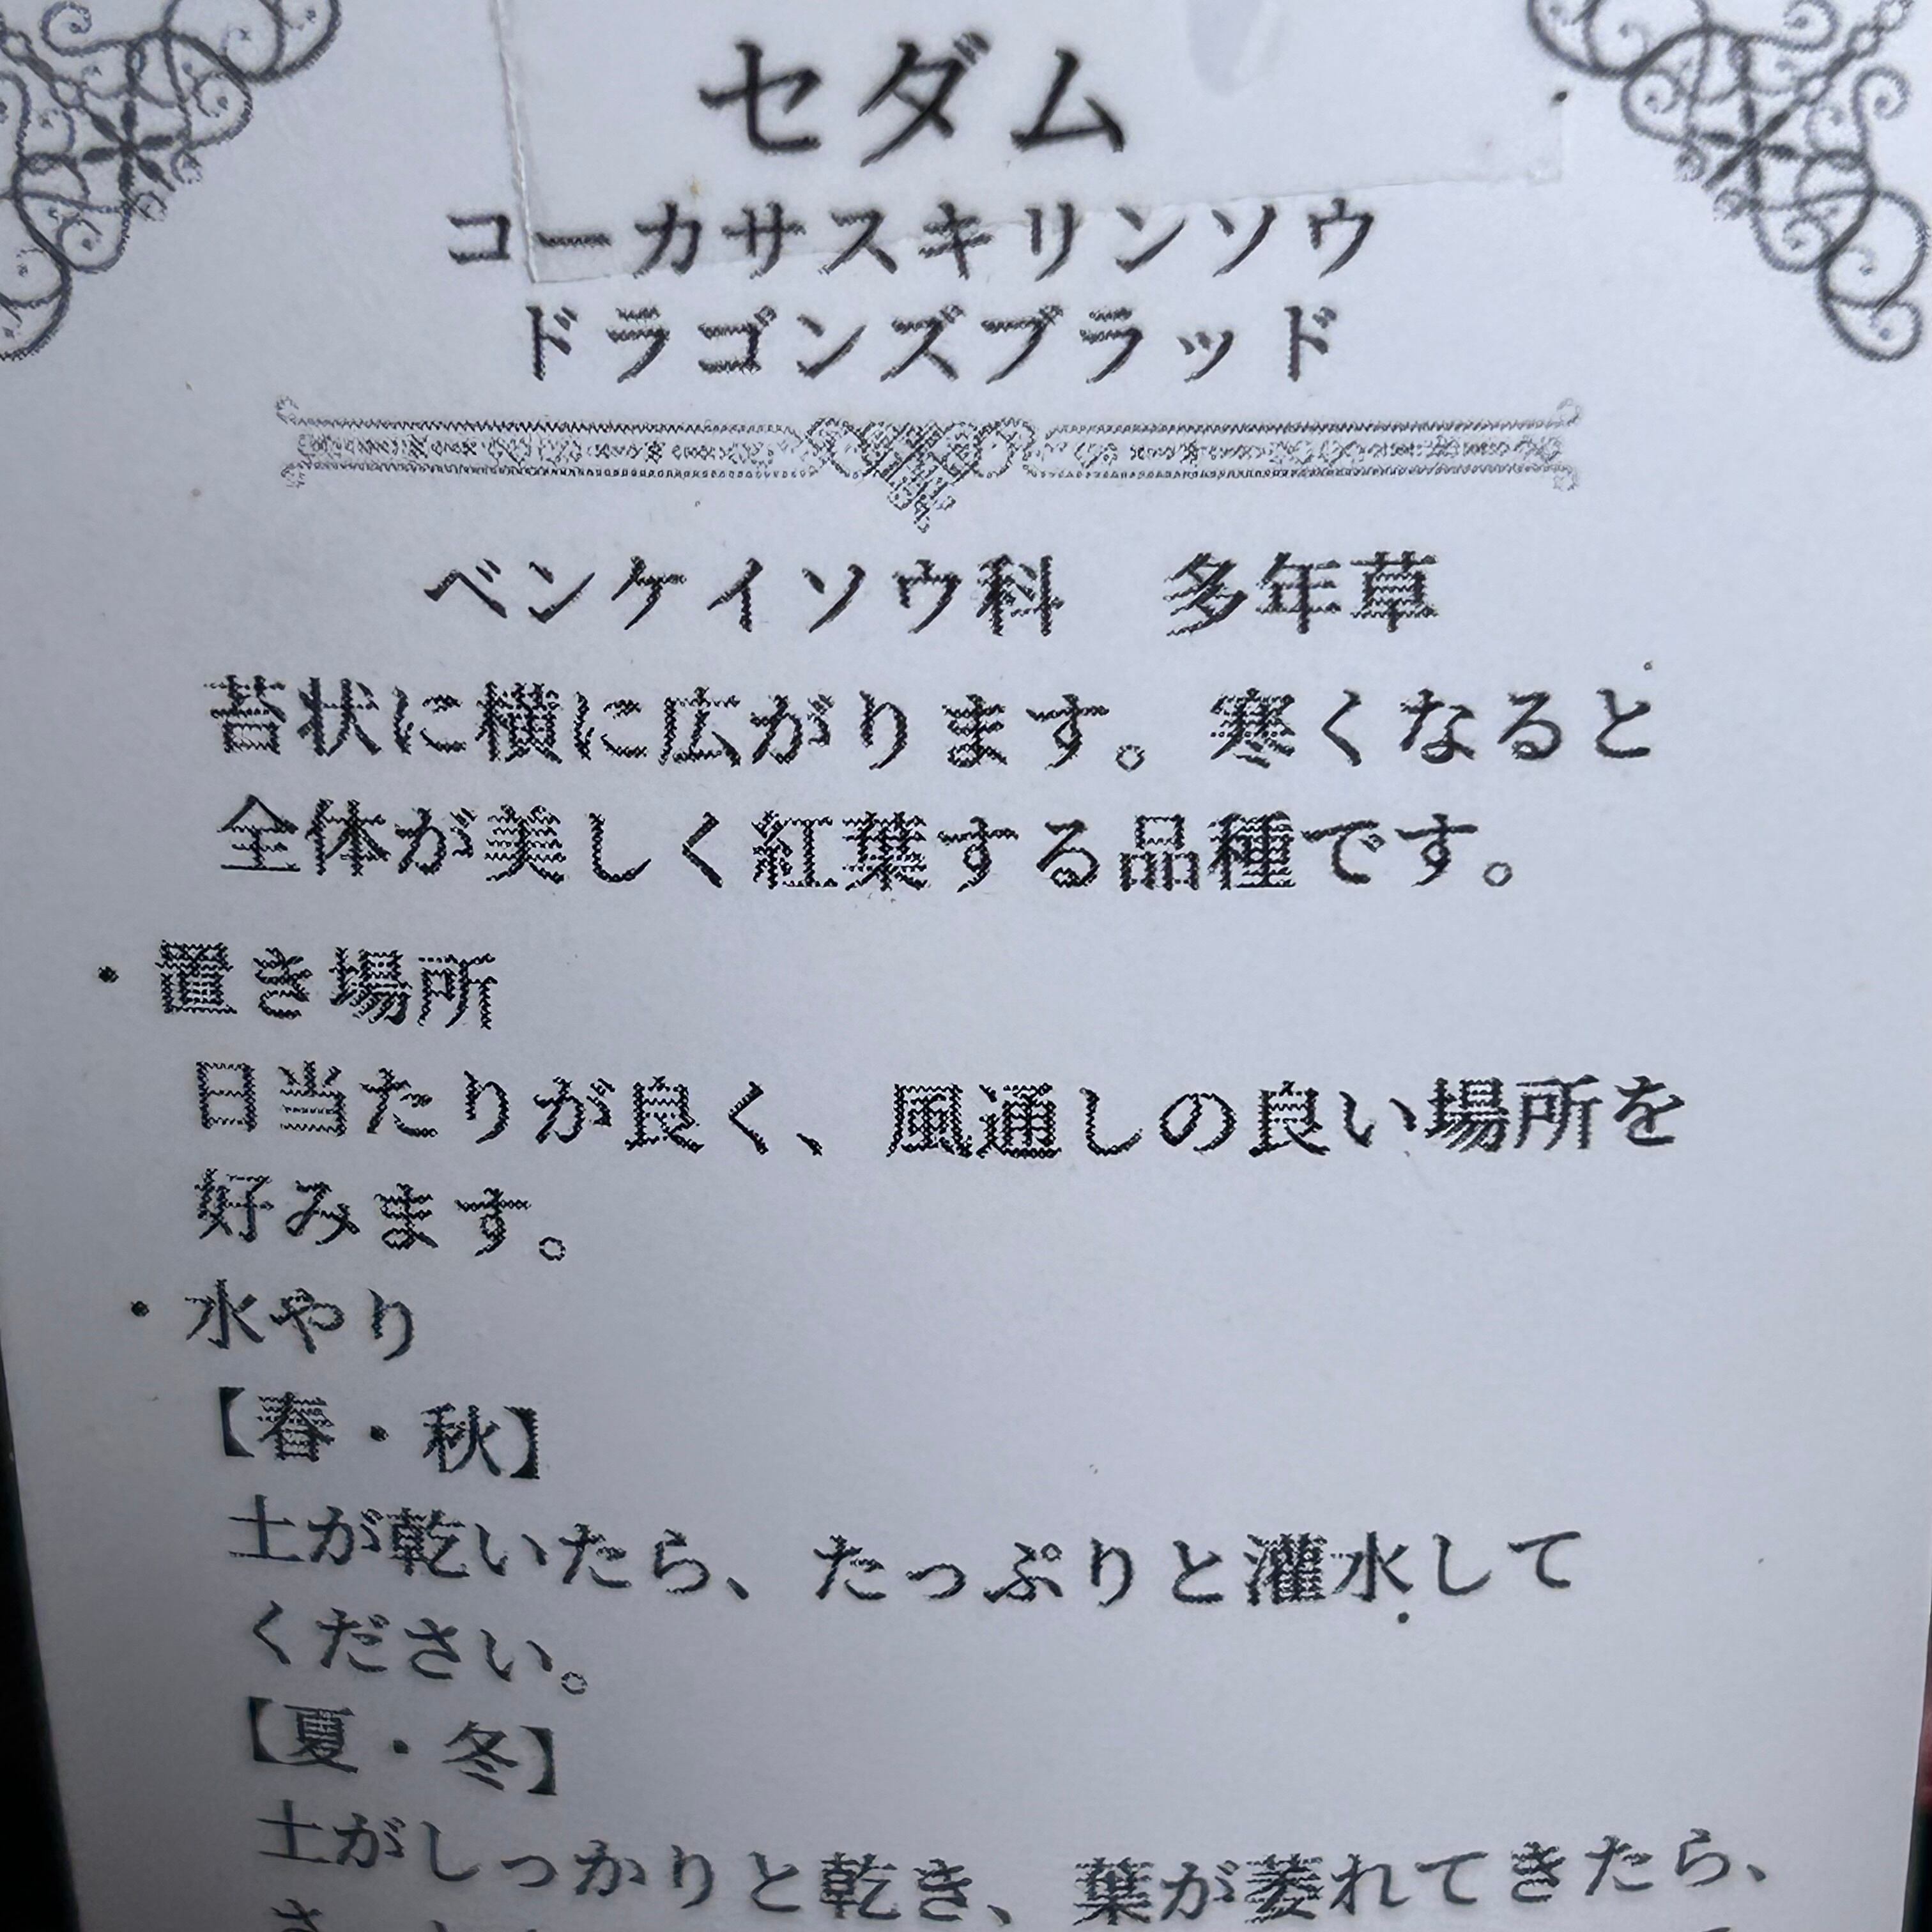 セダム
コーカサスキリンソウ
ドラゴンズブラッド
ベンケイソウ科　多年草
苔状に横に広がります。寒くなると
全体が美しく紅葉する品種です。
・置き場所
日当たりが良く、風通しの良い場所を
好みます。
・水やり
【春・秋】
土が乾いたら、たっぷりと灌水して
ください。
【夏・冬】
土がしっかりと乾き、葉が萎れてきたら、